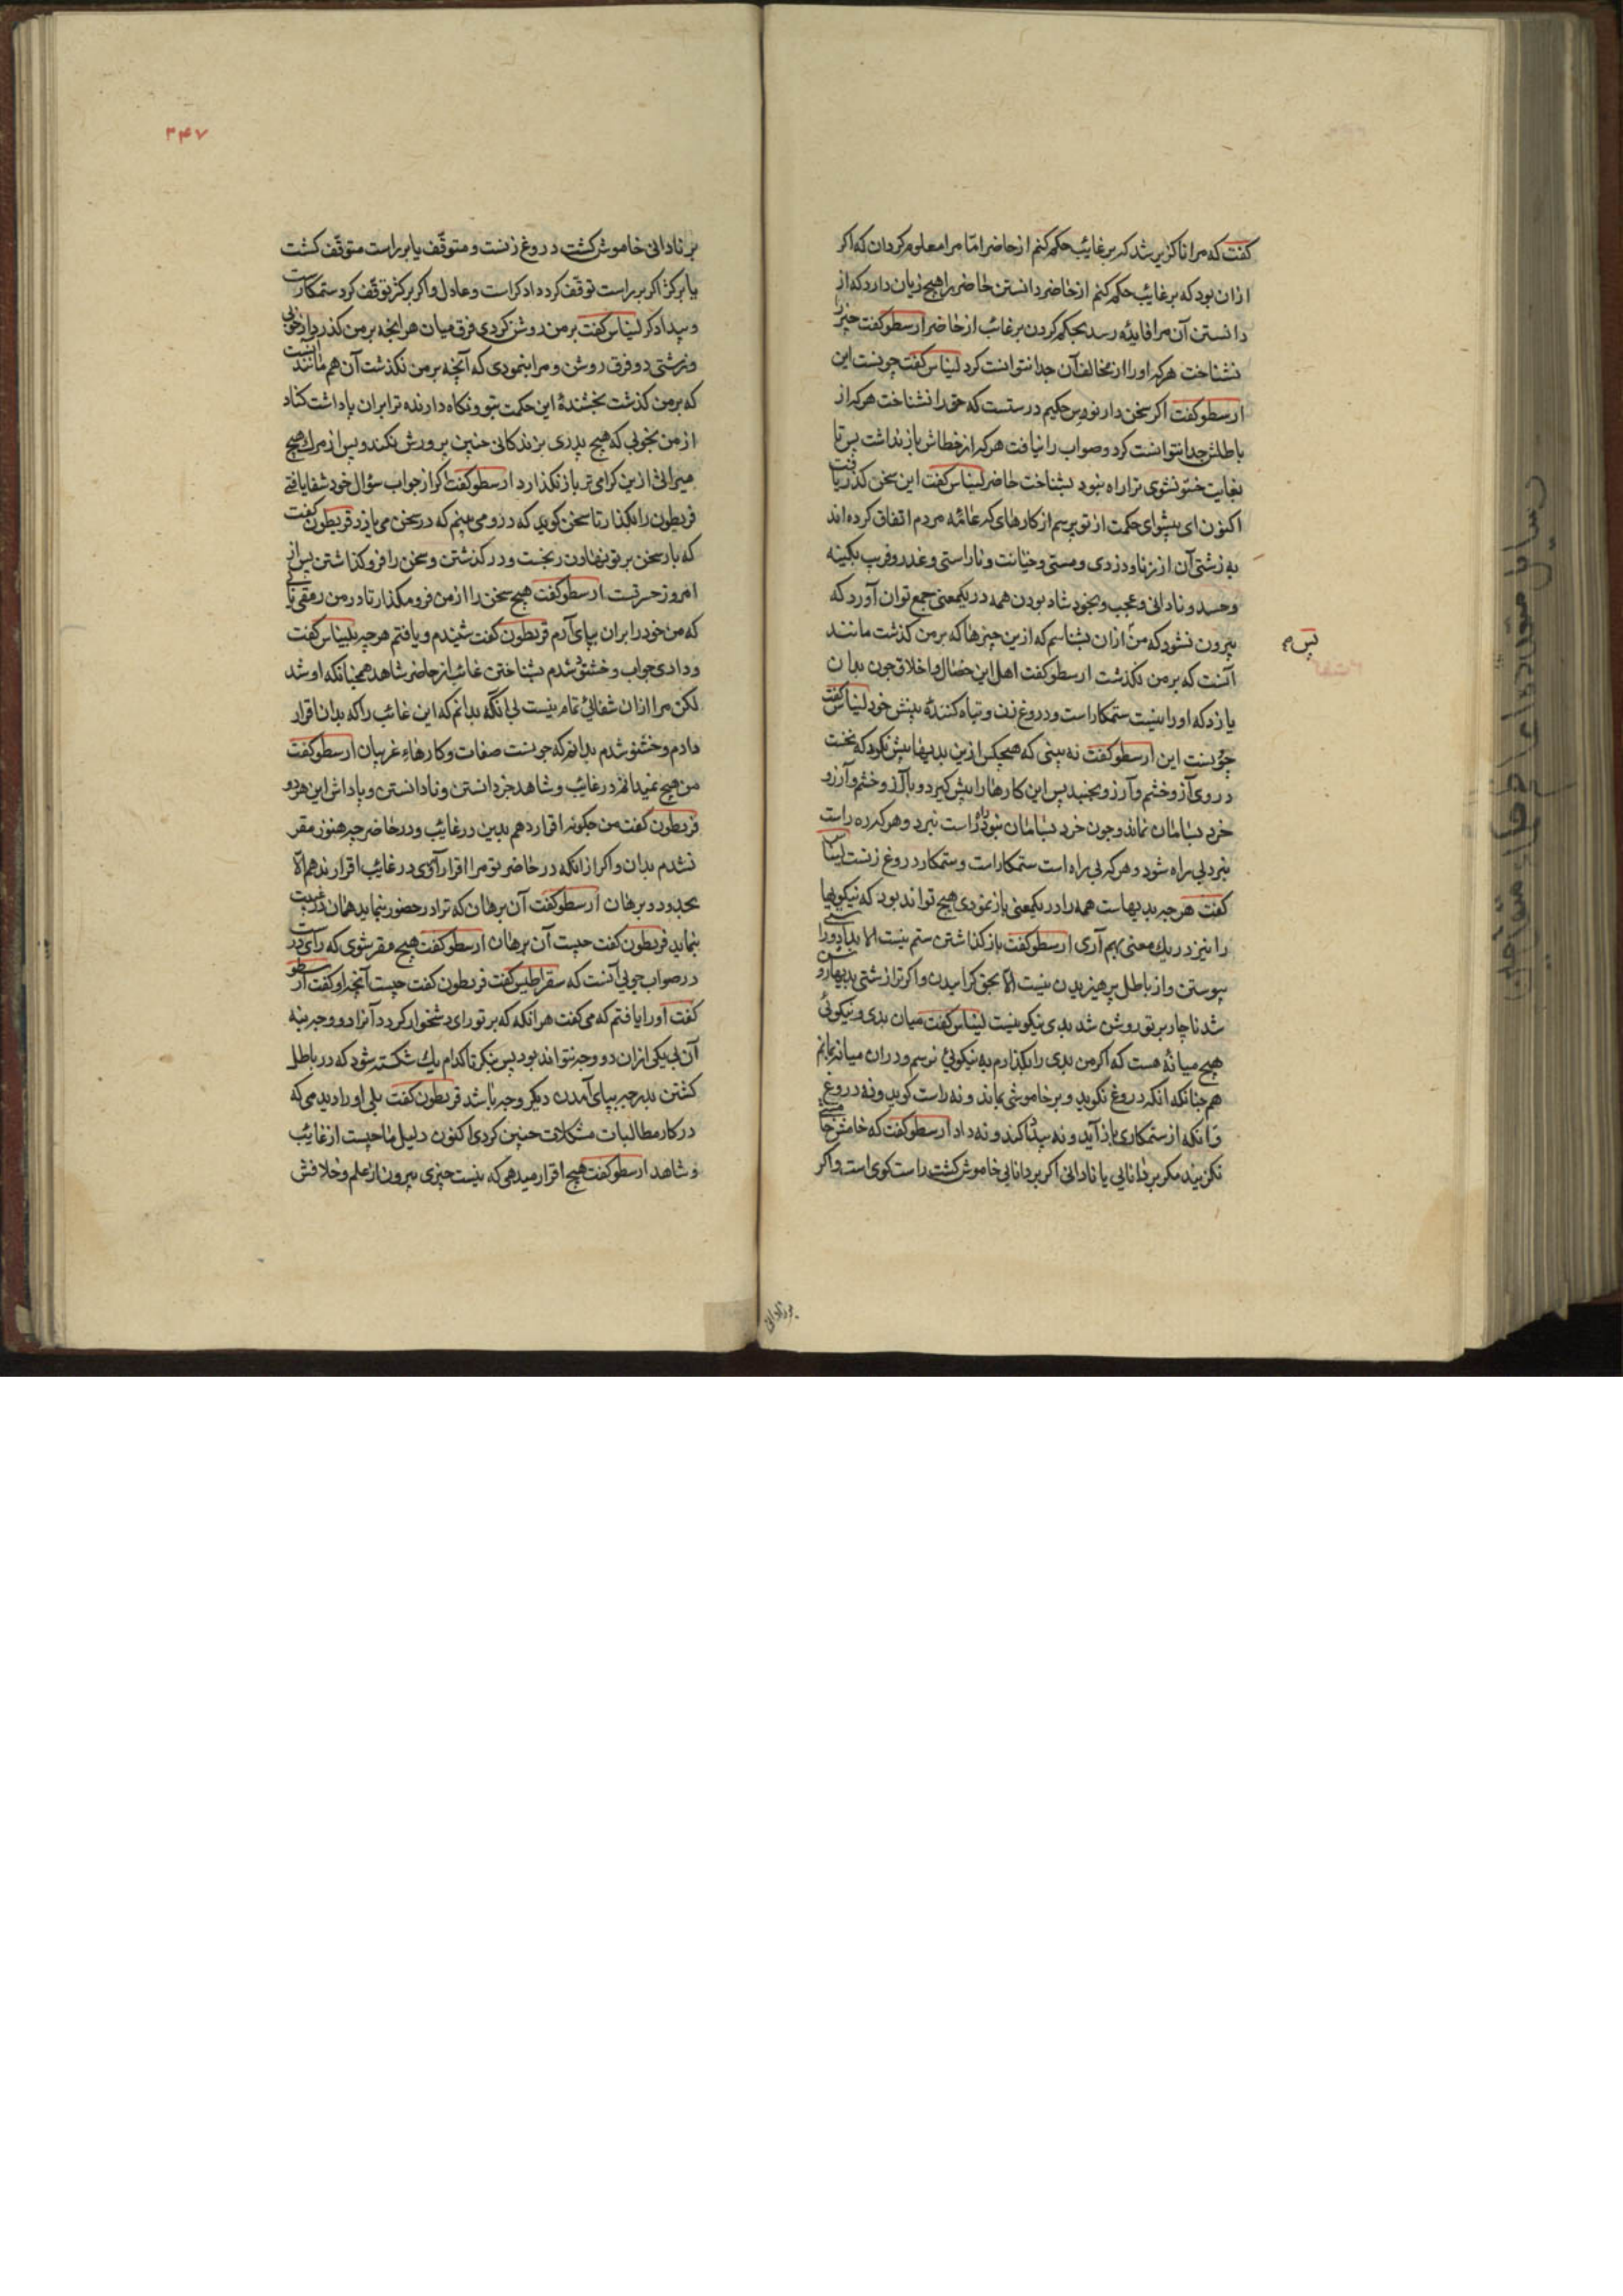 کفت که مرا ناکزیر شد که بر غائب حکم کنم از حاضر امّا مرا معلوم کردان که اکر
ازان بود که بر غائب حکم کنم از حاضر دانستن حاضر را هیچ زیان دارد که از
دانستن آن مرا فایده رسد بحکم کردن بر غائب از حاضر ارسطو کفت چیز را
نشناخت هرکه او را از مخالف آن جدا نتوانست کرد لیناس کفت چونست این
ارسطو کفت اکر سخن دارنوس حکیم درستست که حق را نشناخت هرکه از
باطلش جدا نتوانست کرد و صواب را نیافت هرکه از خطاش باز نداشت پس تا
بغایت خستو نشوی ترا راه نبود بشناخت حاضر لیناس کفت این سخن کذر یافت
اکنون ای پیشوای حکمت از تو پرسم از کارهای که عامّه مردم اتفاق کرده‌اند
به زشتی آن از زنا و دزدی و مستی و خیانت و ناراستی و غدر و فریب و کینه
و حسد و نادانی و عجب و بخود شاد بودن همه در یکمعنی جمع توان آورد که
بیرون نشود که من ازان بشناسم که ازین چیزها که بر من کذشت مانند
آنست که بر من نکذشت ارسطو کفت اهل این خصال و اخلاق چون بدان
یازد که او را نیست ستمکار است و دروغ زن و تباه کنندهٔ بینش خود لیناس کفت
چونست این ارسطو کفت نه بینی که هیچکس ازین بدیها پیش نکیرد که نخست
در وی آز و خشم و آرزو بجنبد پس این کارها را پیش کیرد و با آز و خشم و آرزو
خرد بسامان نماند و چون خرد بسامان نبود راه راست نبرد و هرکه ره راست
نبرد بی راه شود و هرکه بی راه است ستمکار است و ستمکار دروغ زنست لیناس
کفت هرچه بدیهاست همه را در یکمعنی باز نمودی هیچ تواند بود که نیکویها
را نیز در یک معنی بهم آری ارسطو کفت باز کذاشتن ستم نیست الا بدادوراستی
پیوستن و از باطل پرهیزیدن نیست الا بحق کراییدن و اکر ترا زشتی بدیها روشن
شد ناچار بر تو روشن شد بدی نیکو نیست لیناس کفت میان بدی و نیکوئی
هیچ میانهٔ هست که اکر من بدی را بکذارم به نیکوئی نرسم و دران میانه بمانم
هم چنانکه انکه دروغ نکوید و بر خاموشی بماند و نه راست کوید و نه دروغ
و انکه از ستمکاری باز آید و نه بیداد کند و نه داد ارسطو کفت که خامش خامشی
نکزیند مکر بر دانایی یا نادانی اکر بر دانایی خاموش کشت راست کوی است و اکر
پس
بر نادانی
۳۴۷
بر نادانی خاموش کشت دروغ زنست و متوقّف یا بر راست متوقّف کشت
یا بر کژ اکر بر راست توقّف کرد دادکر است و عادل و اکر بر کژ توقّف کرد ستمکارست
و بیدادکر لیناس کفت بر من روشن کردی فرق میان هر انچه بر من کذر دارد از خوبی
و زشتی دو فرق روشن و مرا بنمودی که آنچه بر من نکذشت آن هم مانند آنست
که بر من کذشت بخشندهٔ این حکمت بتو و نکاه دارنده ترا بران پاداشت کناد
از من بخوبی که هیچ پدری بزندکانی چنین پرورش نکند و پس از مرك هیچ
میراثی ازین کرامی‌تر باز نکذارد ارسطو کفت اکر از جواب سؤال خود شفا یافتی
قریطون را بکذار تا سخن کوید که درو می بینم که در سخن می یازد قریطون کفت
که بار سخن بر تو نهادن رنجست و در کذشتن و سخن را فرو کذاشتن پس از
امروز حسرتیست ارسطو کفت هیچ سخن را از من فرو مکذار تا در من رمقی
که من خود را بران بپای آرم قریطون کفت شنیدم و یافتم هرچه بلیناس کفت
و دادی جواب و خشتو شدم بشناختن غائب از حاضر شاهد همچنانکه او شد
لکن مرا ازان شفائی تمام نیست بی آنکه بدانم که این غائب را که بدان اقرار
دادم و خشتو شدم بدانم که چونست صفات و کارهاء غریبان ارسطو کفت
من هیچ نمیدانم در غائب و شاهد جز دانستن و نادانستن و پاداش این هردو
قریطون کفت من چکونه اقرار دهم بدین در غائب و در حاضر چه هنوز مقر
نشدم بدان و اکر ازانکه در حاضر تو مرا اقرار آوری در غائب اقرار ندهم الّا
بحدود و برهان ارسطو کفت آن برهان که ترا در حضور بنماید همان در غیبت
بنماید قریطون کفت چیست آن برهان ارسطو کفت هیچ مقر شوی که رای درست
در صواب جویی آنست که سقراطیس کفت قریطون کفت چیست آنچه او کفت ارسطو
کفت او را یافتم که می کفت هر انکه که بر تو رای دشخوار کردد آنرا دو وجه بنه
آن بی یکی ازان دو وجه نتواند بود پس بنکر تا کدام یك شکسته شود که در باطل
کشتن بدرجه بپای آمدن دیکر وجه باشد قریطون کفت بلی او را دیدمی که
در کار مطالبات مشکلات چنین کردی اکنون دلیل ما چیست از غایب
و شاهد ارسطو کفت هیچ اقرار میدهی که نیست چیزی بیرون از علم و خلافش